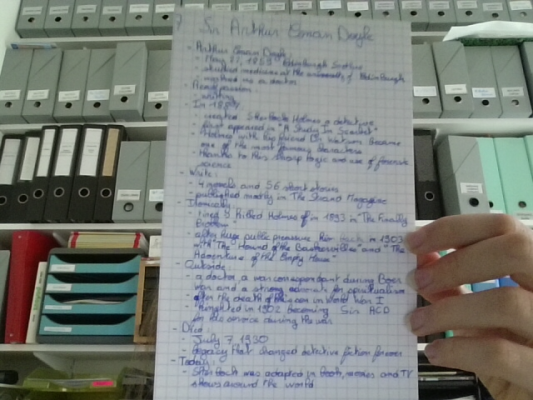 Sir Arthur Conan Doyle
- Arthur Conan Doyle:
- May 22, 1859 Edinburgh
- studied medicine at the university of Edinburgh
- worked as a doctor
- writing
- In 1887
- created Sherlock Holmes a detective
first appeared in "A Study In Scarlet"
- Holmes with his friend Dr. Watson became
one of the most famous characters
- thanks to his sharp logic and use of forensic
science
- Write:
- 4 novels and 56 short stories
- published mostly in The Strand Magazine
- killed Holmes in 1893 in "The Finally
Problem"
- after huge public pressure her back in 1903
with "The Hound of the Baskervilles" and "The
Adventure of the Empty House"
- Outside:
- a doctor, a war correspondent during Boer
war and a strong for spiritualism
after the death of in world war I
- knighted in 1902 becoming Sir ACD
for during the war
- Died:
- July 7, 1930
- legacy that changed detective fiction forever
- Today:
- Sherlock was adapted in book, movies and TV
shows around the world